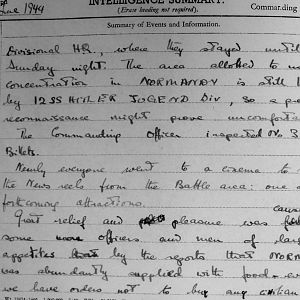 June 1944
INTELLIGENCE SUMMARY.
(Erase heading not required).
Commanding
Summary of Events and Information.
Divisional HQ, where they stayed until
Sunday night. The area allotted to
concentration in NORMANDY is still
by 12 SS HITLER JUGEND Div, so a
reconnaissance might prove
The Commanding Officer inspected No 3
Billets.
Nearly everyone went to a cinema to
the News reels from the Battle area: one
forthcoming attractions.
Great relief and pleasure was
some officers and men of
appetites by the reports that
was abundantly supplied with food +
we have orders not to buy any